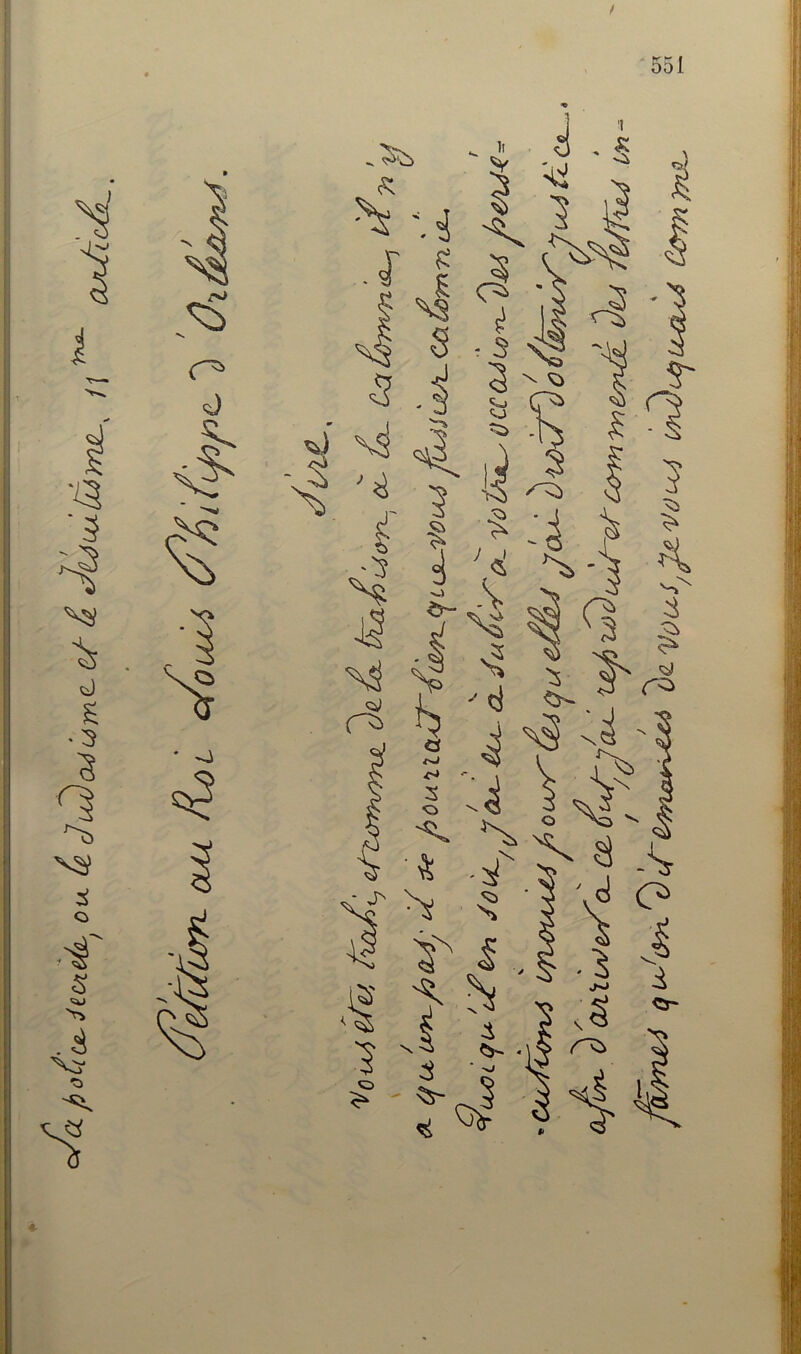 551
La police secrète, ou le Judaïsme et le Jésuitisme, 11me article.
Pétition au Roi Louis Philippe d'Orléans.
Sire.
Vous êtes trahi, et comme de la trahison, à la calomnie, il n'y
a qu'un pas; il se pourrait bien que vous fussiez calomnié.
Quoiqu'il en soit, j'ai eu à subir à votre occasion des persé=
cutions inouies pour lesquelles j'ai droit d'obtenir justice.
afin d'arriver à ce but, j'ai reproduit et commenté des lettres in-
fâmes qu'on dit émanées de vous, je vous indiquais comme